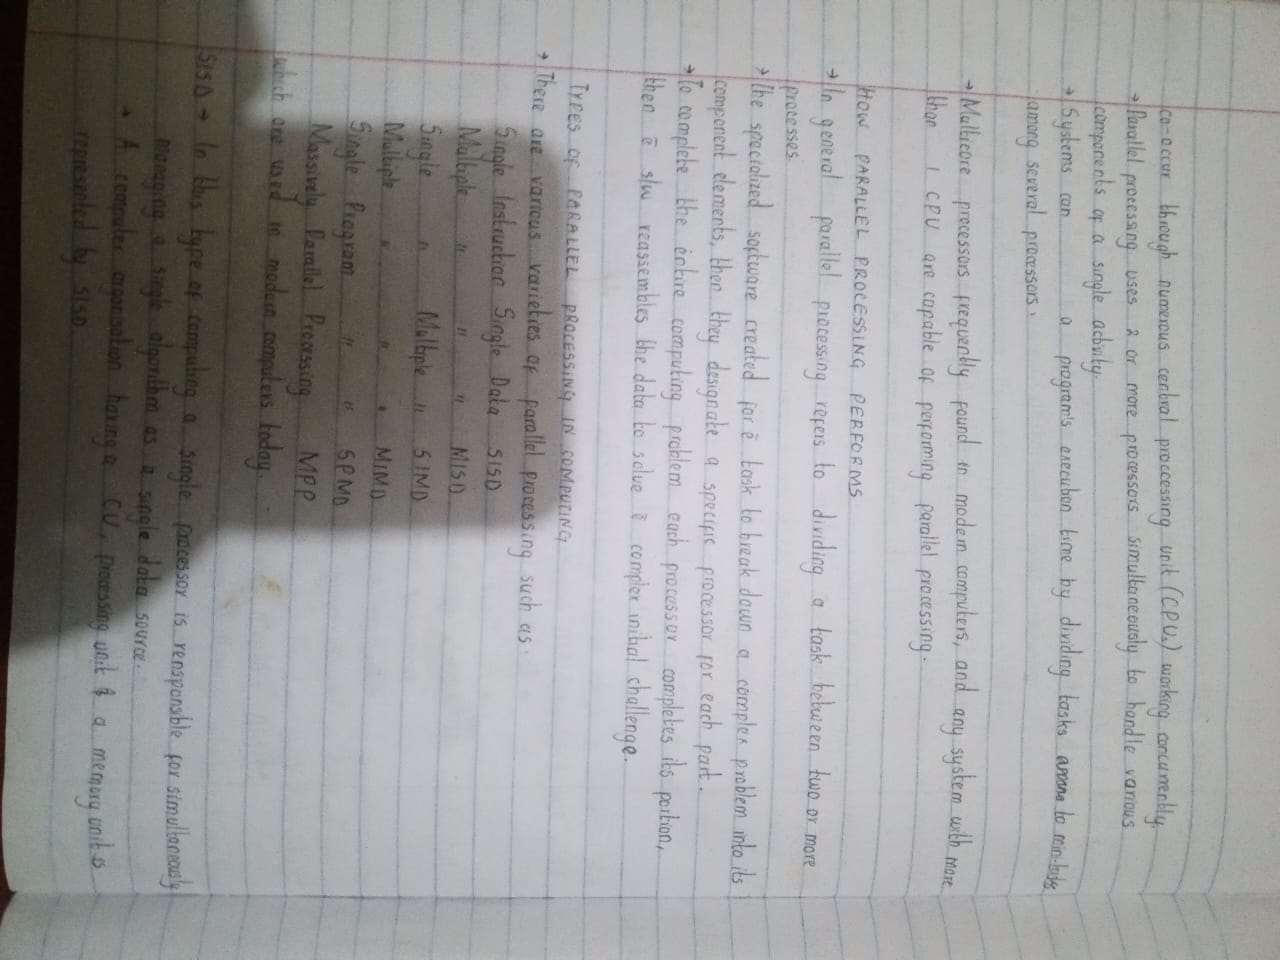 co-occur through numerous central proccessing unit (CPUs) working concurrently.
→ Parallel processing uses 2 or more processors simultaneously to handle various
components of a single activity.
→ Systems can a program's execution time by dividing tasks to
among several processors.
→ Multicore processors frequently found in modern computers, and any system with more
than 1 CPU are capable of performing parallel processing.
HOW PARALLEL PROCESSING PERFORMS
→ In general parallel processing refers to dividing a task between two or more
processes.
→ The specialized software created for ē task to break down a complex problem into its
component elements, then they designate a specific processor for each part.
→ To complete the entire computing problem each processor completes its portion,
then ē s/w reassembles the data to solve ē complex initial challenge.
TYPES OF PARALLEL PROCESSING IN COMPUTING
→ There are various varieties of parallel processing such as.
Single Instruction Single Data SISD
Multiple " " " MISD
Single " Multiple " SIMD
Multiple " " " MIMD
Single Program " " SPMD
Massively Parallel Processing MPP
which are used in modern computers today.
SISD → In this type of computing a single processor is rensponsible for simultaneously
managing a single algorithm as a single data source.
→ A computer organisation having a CU, processing unit & a memory unit is
represented by SISD.